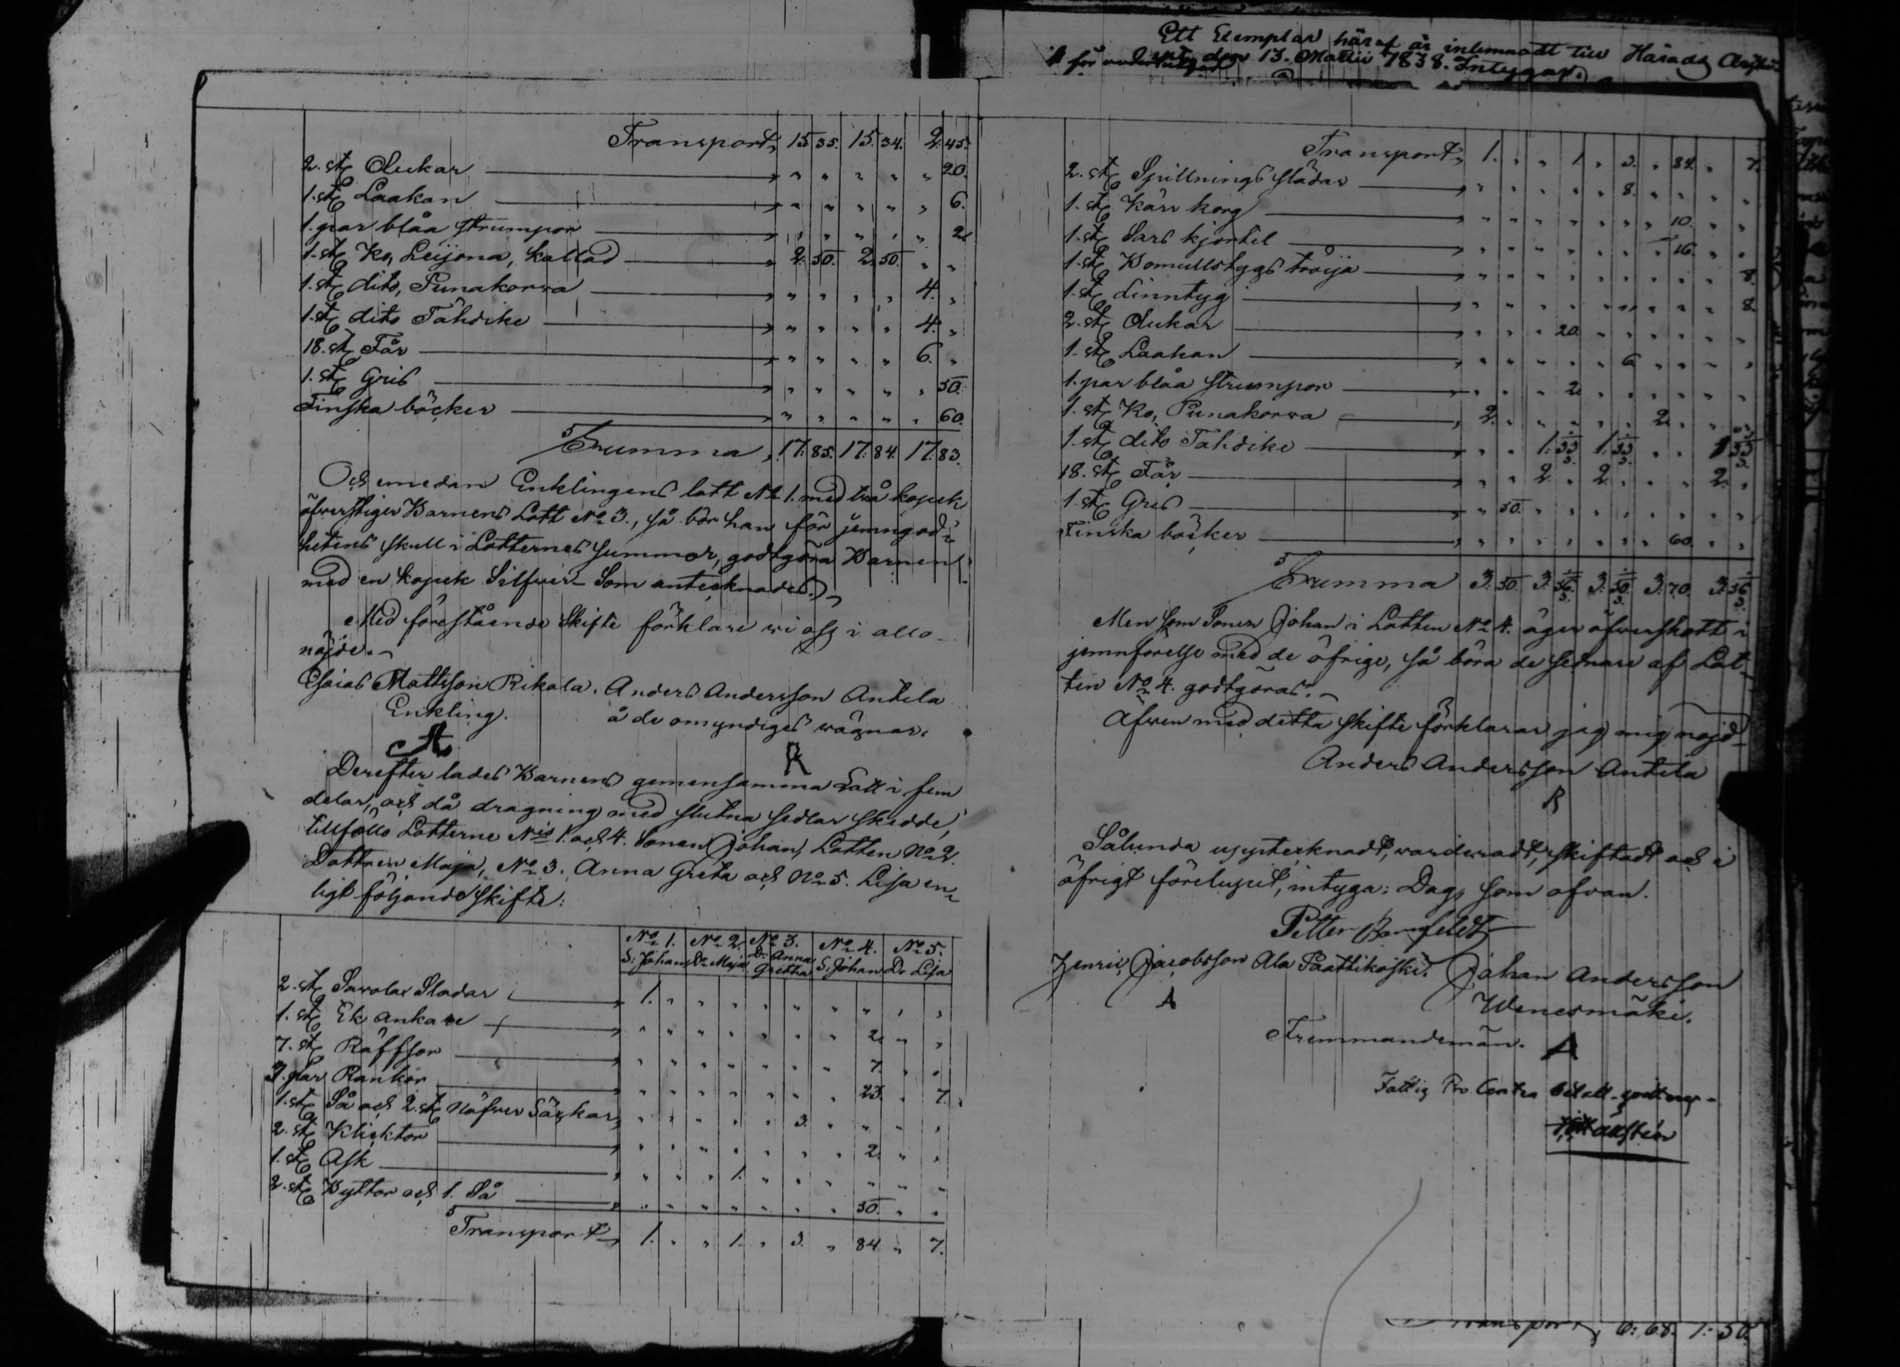 Transport, 15 35. 15. 34. 2. 45.
2. st Olukar " " " " " 20.
1. st Laakan " " " " " 6.
1. par blåa strumpor " " " " " 2
1. st Ko, Leijona, kallad 2. 50. 2. 50. " "
1. st dito, Punakorva " " " " 4. "
1. st dito Tähdike " " " " 4. "
18. st Får " " " " 6. "
1. st Gris " " " " " 50.
Finska böcker " " " " " 60.
Summa, 17. 85. 17. 84. 17. 83.
Och emedan Enklingens lott No 1. med två kopek
öfverstiger Barnens Lott No 3., så bör han för jemngod-
hetens skull i Lotternes summor, godtgöra Barnen
med en kopek Silfver som antecknades.
Med förestående Skifte förklare wi oss i allo
nöjde.
Esaias Mattsson Rikala. Anders Andersson Antila
Enkling. å de omyndiges wägnar.
A R
Derefter lades Barnens gemensamma Lott i fem
delar, och då dragning med slutna sedlar skedde,
tillföllo Lotterne Nris 1. och 4. Sonen Johan, Lotten No 2.
Dottren Maja, No 3. Anna Greta och No 5. Lisa en-
ligt följande Skifte:
No 1. No 2. No 3. No 4. No 5.
S. Johan Dr Maja Dr Anna Gretha S. Johan Dr Lisa
2. st Savolax Sladar 1. " " " " " " " " "
1. st Ek ankare " " " " " " " 2 " "
7. st Räffsor " " " " " " " 7. " "
3. par Rankor " " " " " " " 23. " 7.
1. st Så och 2. st Näfver Säckar " " " " " 3. " " " "
2. st Klicktor " " " " " " " 2 " "
1. st Ask " " " 1. " " " " " "
2. st Byttor och 1. Så " " " " " " " 50. " "
Transport 1. " " 1. " 3. " 84 " 7.
Ett Exemplar häraf är inlemnadt till Härads
den 13. Martii 1838. Intygar.
Transport, 1. " " 1 " 3. " 84. " 7.
2. st Spillnings slädar " " " " " 8. " " " "
1. st Kärr korg " " " " " " " 10. " "
1. st Sars kjortel " " " " " " " 16. " "
1. st Bomullstygs tröija " " " " " " " " " 8.
1. st Linntyg " " " " " " " " " 8.
2. st Olukar " " " 20 " " " " " "
1. st Laakan " " " " " 6 " " " "
1. par blåa strumpor " " " 2 " " " " " "
1. st Ko, Punakorva 2. " " " " " 2. " " "
1. st dito Tähdike " " 1. 33 1/3 1. 33 1/3 " " 1 33 1/3
18. st Får " " 2 " 2 " " " 2. "
1. st Gris " 50. " " " " " " " "
Finska böcker " " " " " " " 60. " "
Summa 3. 50. 3. 56 1/3 3. 50 1/3 3. 70. 3. 56 1/3
Men som Sonen Johan i Lotten No 4. äger öfverskott i
jemnförelse med de öfrige, så böra de sednare af Lot-
ten No 4. godtgöras.
Äfven med detta skifte förklarar jag mig nöjd
Anders Andersson Antila
R
Sålunda upptecknadt, värderadt, skiftadt och i
öfrigt förelupet, intyga: Dag som ofvan.
Petter
Henric Jacobsson Ala Paattikoski. Johan Andersson
A Wenesmäki.
Fremmandemän. A
Fattig Pro Centen
Transport, 6: 68. 1: 50.